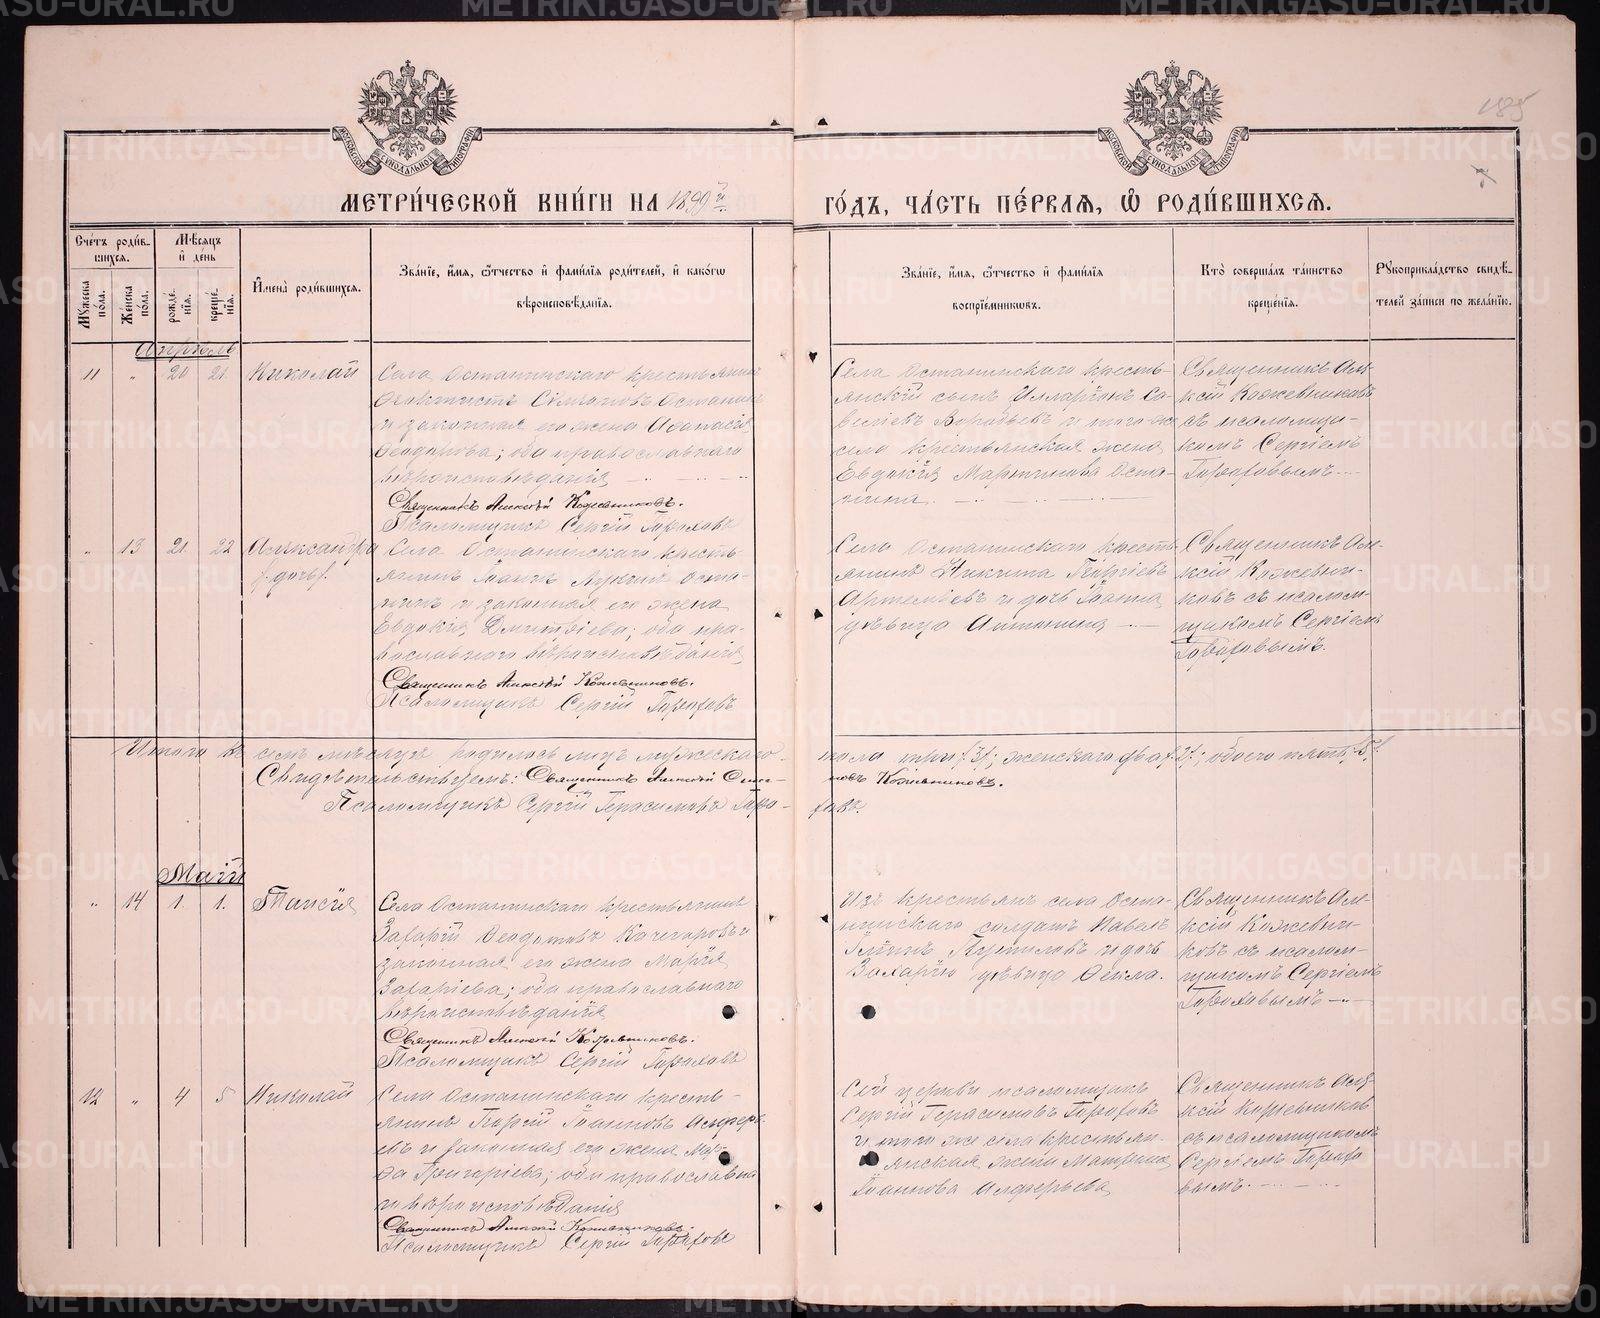 METRIKI.GASO-URAL.RU
185
МОСКОВСКОЙ СѴНОДАЛЬНОЙ ТИПОГРАФІИ
МЕТРИ́ЧЕСКОЙ КНИ́ГИ НА 1899й
ГО́ДЪ, ЧА́СТЬ ПЕ́РВАЯ, Ѽ РОДИ́ВШИХСЯ.
Сче́тъ роди́вшихся.
Му́жеска по́ла.
Же́нска по́ла.
Мѣ́сяцъ и де́нь
рожде́нїя.
креще́нїя.
Имена̀ роди́вшихся.
Зва́нїе, и́мя, ѻ҆́тчество и фами́лїя роди́телей, и како́гѡ
вѣроисповѣ́данїя.
Зва́нїе, и́мя, ѻ҆́тчество и фами́лїя
воспрїе́мникѡвъ.
Кто̀ соверша́лъ та́инство
креще́нїя.
Рукоприкла́дство свидѣ́-
телей за́писи по жела́нїю.
Апрѣль
11 " 20 21. Николай
Села Останинскаго крестьянинъ
Останинъ
и законная его жена Аѳанасія
Ѳеодорова; оба православнаго
вѣроисповѣданія
Священникъ Алексѣй Кожевниковъ.
Псаломщикъ Сергій Гороховъ
Села Останинскаго кресть-
янскій сынъ Илларіонъ Са-
вельевъ Воробьевъ и того же
села крестьянская жена
Евдокія Мартинова Оста-
нина.
Священникъ Але-
ксій Кожевниковъ
съ псаломщи-
комъ Сергіемъ
Гороховымъ
" 13 21. 22 Александра
/дочь/.
Села Останинскаго кресть-
янинъ Іоаннъ Оста-
нинъ и законная его жена
Евдокія Дмитріева; оба пра-
вославнаго вѣроисповѣданія
Священникъ Алексѣй Кожевниковъ.
Псаломщикъ Сергій Гороховъ
Села Останинскаго кресть-
янинъ Никита Георгіевъ
Артемьевъ и дочь Іоанна
дѣвица Антонина
Священникъ Але-
ксій Кожевни-
ковъ съ псалом-
щикомъ Сергіемъ
Гороховымъ.
Итого въ семъ мѣсяцѣ родилось лицъ мужескаго
пола три /3/; женскаго два /2/; обоего пять /5/
Свидѣтельствуемъ: Священникъ Алексѣй
Кожевниковъ.
Псаломщикъ Сергій Герасимовъ Горо-
ховъ.
Май
" 14 1. 1. Таисія
Села Останинскаго крестьянинъ
Захарій Ѳеодотовъ Кочегаровъ и
законная его жена Марія
Захаріева; оба православнаго
вѣроисповѣданія
Священникъ Алексѣй Кожевниковъ.
Псаломщикъ Сергій Гороховъ
Изъ крестьянъ села Оста-
нинскаго солдатъ Павелъ
и дочь
Захарію дѣвица Ѳекла.
Священникъ Але-
ксій Кожевни-
ковъ съ псалом-
щикомъ Сергіемъ
Гороховымъ
12 " 4 5 Николай
Села Останинскаго кресть-
янинъ Георгій Іоанновъ Алферь-
евъ и законная его жена Мар-
Григоріева; оба православна-
го вѣроисповѣданія
Священникъ Алексѣй Кожевниковъ.
Псаломщикъ Сергій Гороховъ
Сей церкви псаломщикъ
Сергій Герасимовъ Гороховъ
и того же села крестьян-
янская жена Матрона
Іоаннова Алферьева
Священникъ Але-
ксій Кожевниковъ
съ псаломщикомъ
Сергіемъ Горохо-
вымъ.